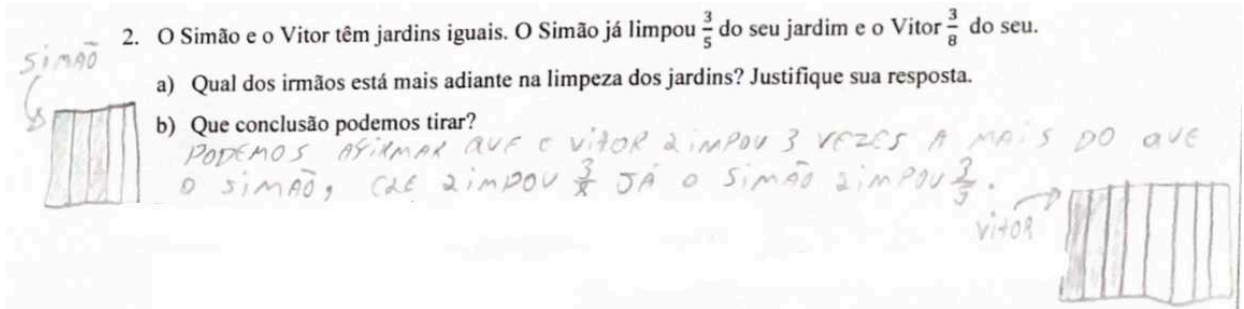 2. O Simão e o Vitor têm jardins iguais. O Simão já limpou 3/5 do seu jardim e o Vitor 3/8 do seu.
SIMÃO
a) Qual dos irmãos está mais adiante na limpeza dos jardins? Justifique sua resposta.
b) Que conclusão podemos tirar?
PODEMOS AFIRMAR QUE O VITOR LIMPOU 3 VEZES A MAIS DO QUE
O SIMÃO, ELE LIMPOU 3/8 JÁ O SIMÃO LIMPOU 3/5.
VITOR